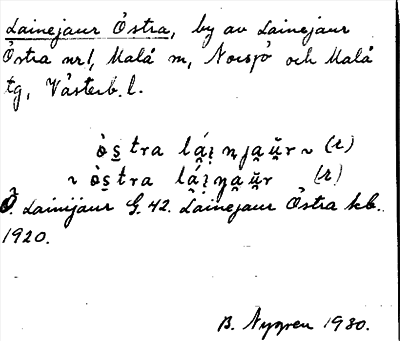 Lainejaur Östra, by av Lainejaur
Östra nr1, Malå sn, Norsjö och Malå
tg, Västerb. l.
òs̲tra lá̯i̯njaŭ̯r ~ (r)
~ òs̲tra lá̯i̯n̯aŭ̯r (r)
Ö. Lainijaur G. 42. Lainejaur Östra kb.
1920.
B. Nygren 1930.